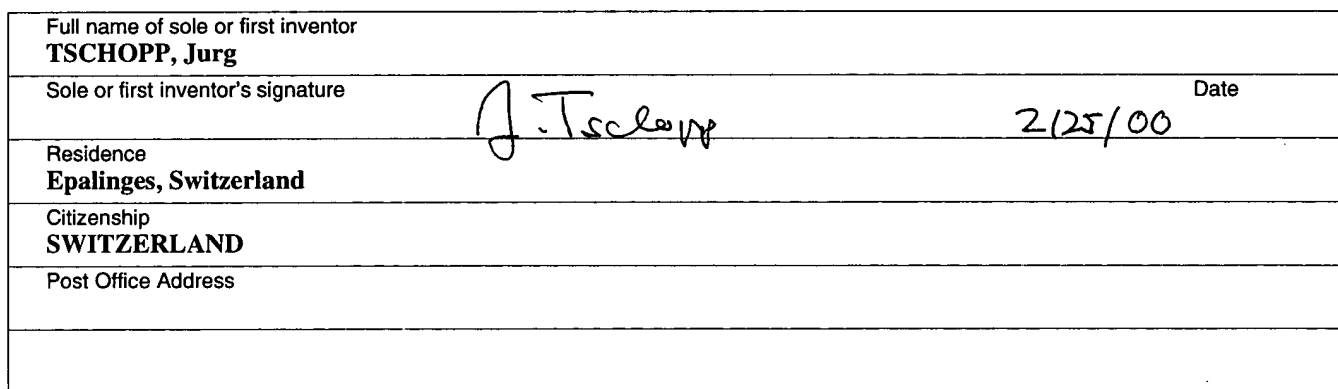 Full name of sole or first inventor
TSCHOPP, Jurg
Sole or first inventor's signature Date
J. Tschopp 2/25/00
Residence
Epalinges, Switzerland
Citizenship
SWITZERLAND
Post Office Address